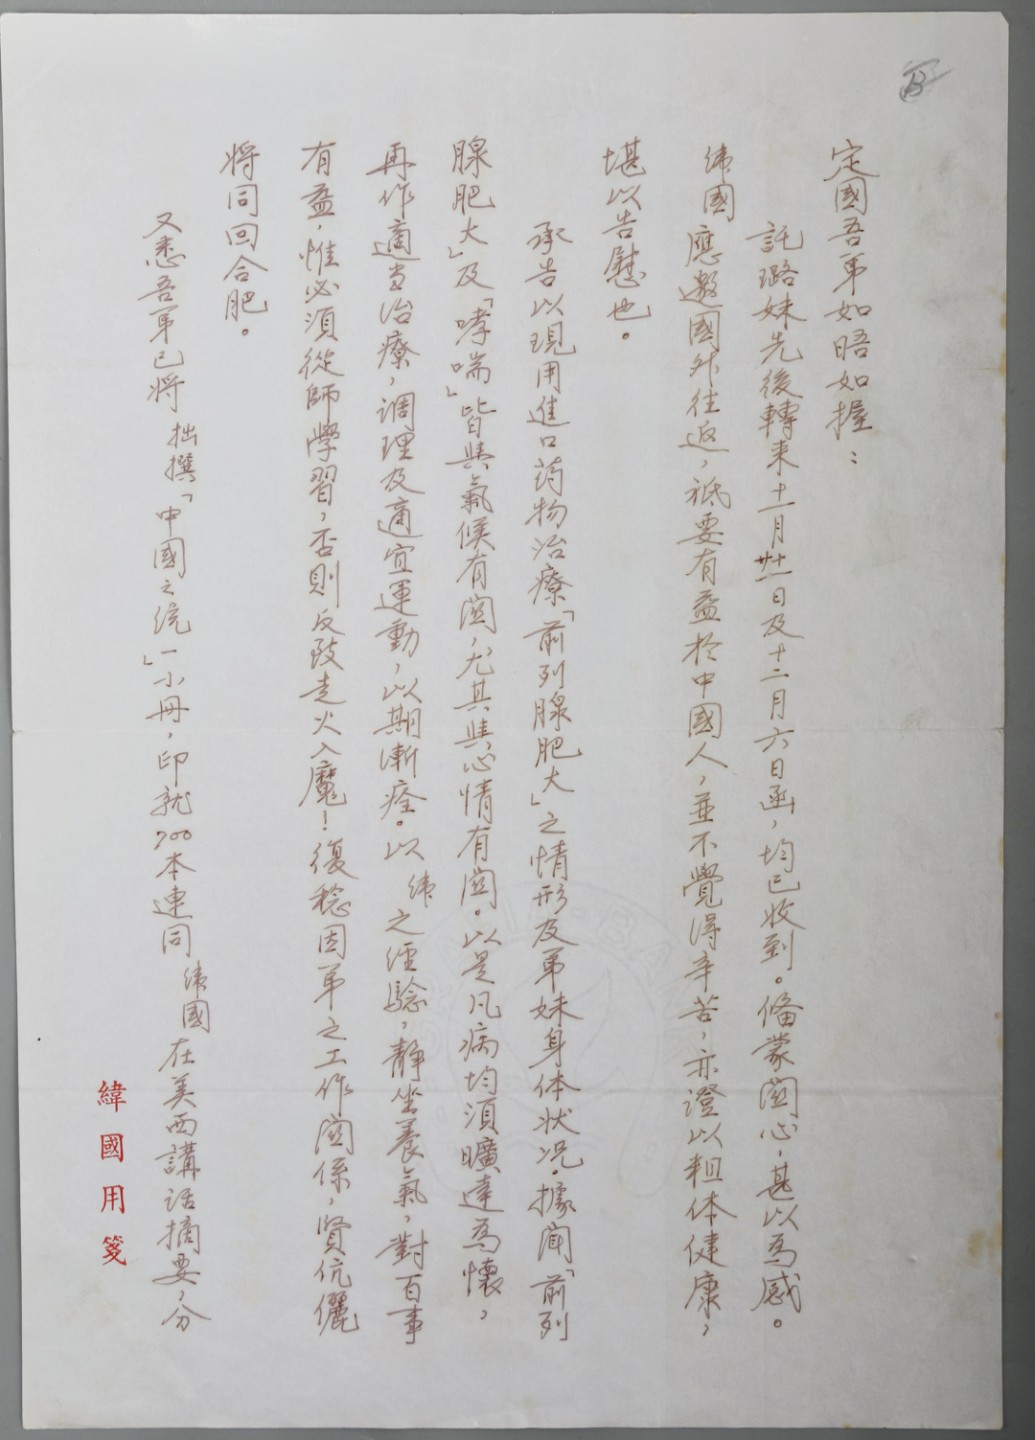 定國吾弟如晤如握：
託璐妹先後轉来十一月廿一日及十二月六日函，均已收到。偹蒙関心，甚以為感。
緯國應邀國外往返，祗要有益於中國人，並不覺得辛苦，亦證以粗体健康，
堪以告慰也。
承告以現用進口药物治療「前列腺肥大」之情形及弟妹身体状况。據聞「前列
腺肥大」及「哮喘」皆與氣候有関，尤其與心情有関。以是凡病均須曠達為懷，
再作適当治療，調理及適宜運動，以期漸痊。以緯之经驗，靜坐養氣，對百事
有益，惟必須從師學習，否則反致走火入魔！復稔因弟之工作関係，賢伉儷
将同回合肥。
又悉吾弟已将拙撰「中國之统一」小冊，印就700本連同緯國在美西講話摘要，分
緯國用箋